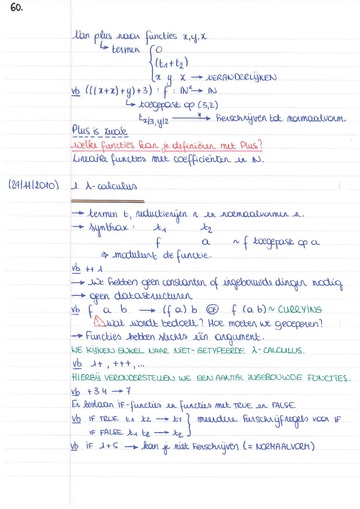 60.
Van plus naar functies x,y,x
↳ termen { 0
(t1+t2)
x y x → VERANDERLIJKEN
vb (((x+x)+y)+3) : f : ℕ² → ℕ
↳ toegepast op (3,2)
t x/3, y/2 →* Herschrijven tot normaalvorm.
Plus is zwak
welke functies kan je definiëren met Plus?
Lineaire functies met coëfficiënten in ℕ.
(24/11/2010) λ-calculus
→ termen t, reductierijen en normaalvormen
→ synthax : t1 t2
f a ~ f toegepast op a
⇒ moduleert de functie.
vb ++ 1
→ We hebben geen constanten of ingebouwde dingen nodig
→ geen datastructuren
vb f a b → (f a) b of f (a b) ~ CURRYING
wat wordt bedoelt? Hoe moeten we groeperen?
→ Functies hebben slechts één argument.
WE KIJKEN ENKEL NAAR NIET-GETYPEERDE λ-CALCULUS.
vb 1+, +++, ...
HIERBIJ VERONDERSTELLEN WE EEN AANTAL INGEBOUWDE FUNCTIES.
vb +3 4 → 7
Er bestaan IF-functies en functies met TRUE en FALSE
vb IF TRUE t1 t2 → t1 } meerdere herschrijfregels voor IF
IF FALSE t1 t2 → t2
vb IF 1+5 → kan je niet herschrijven (= NORMAALVORM)